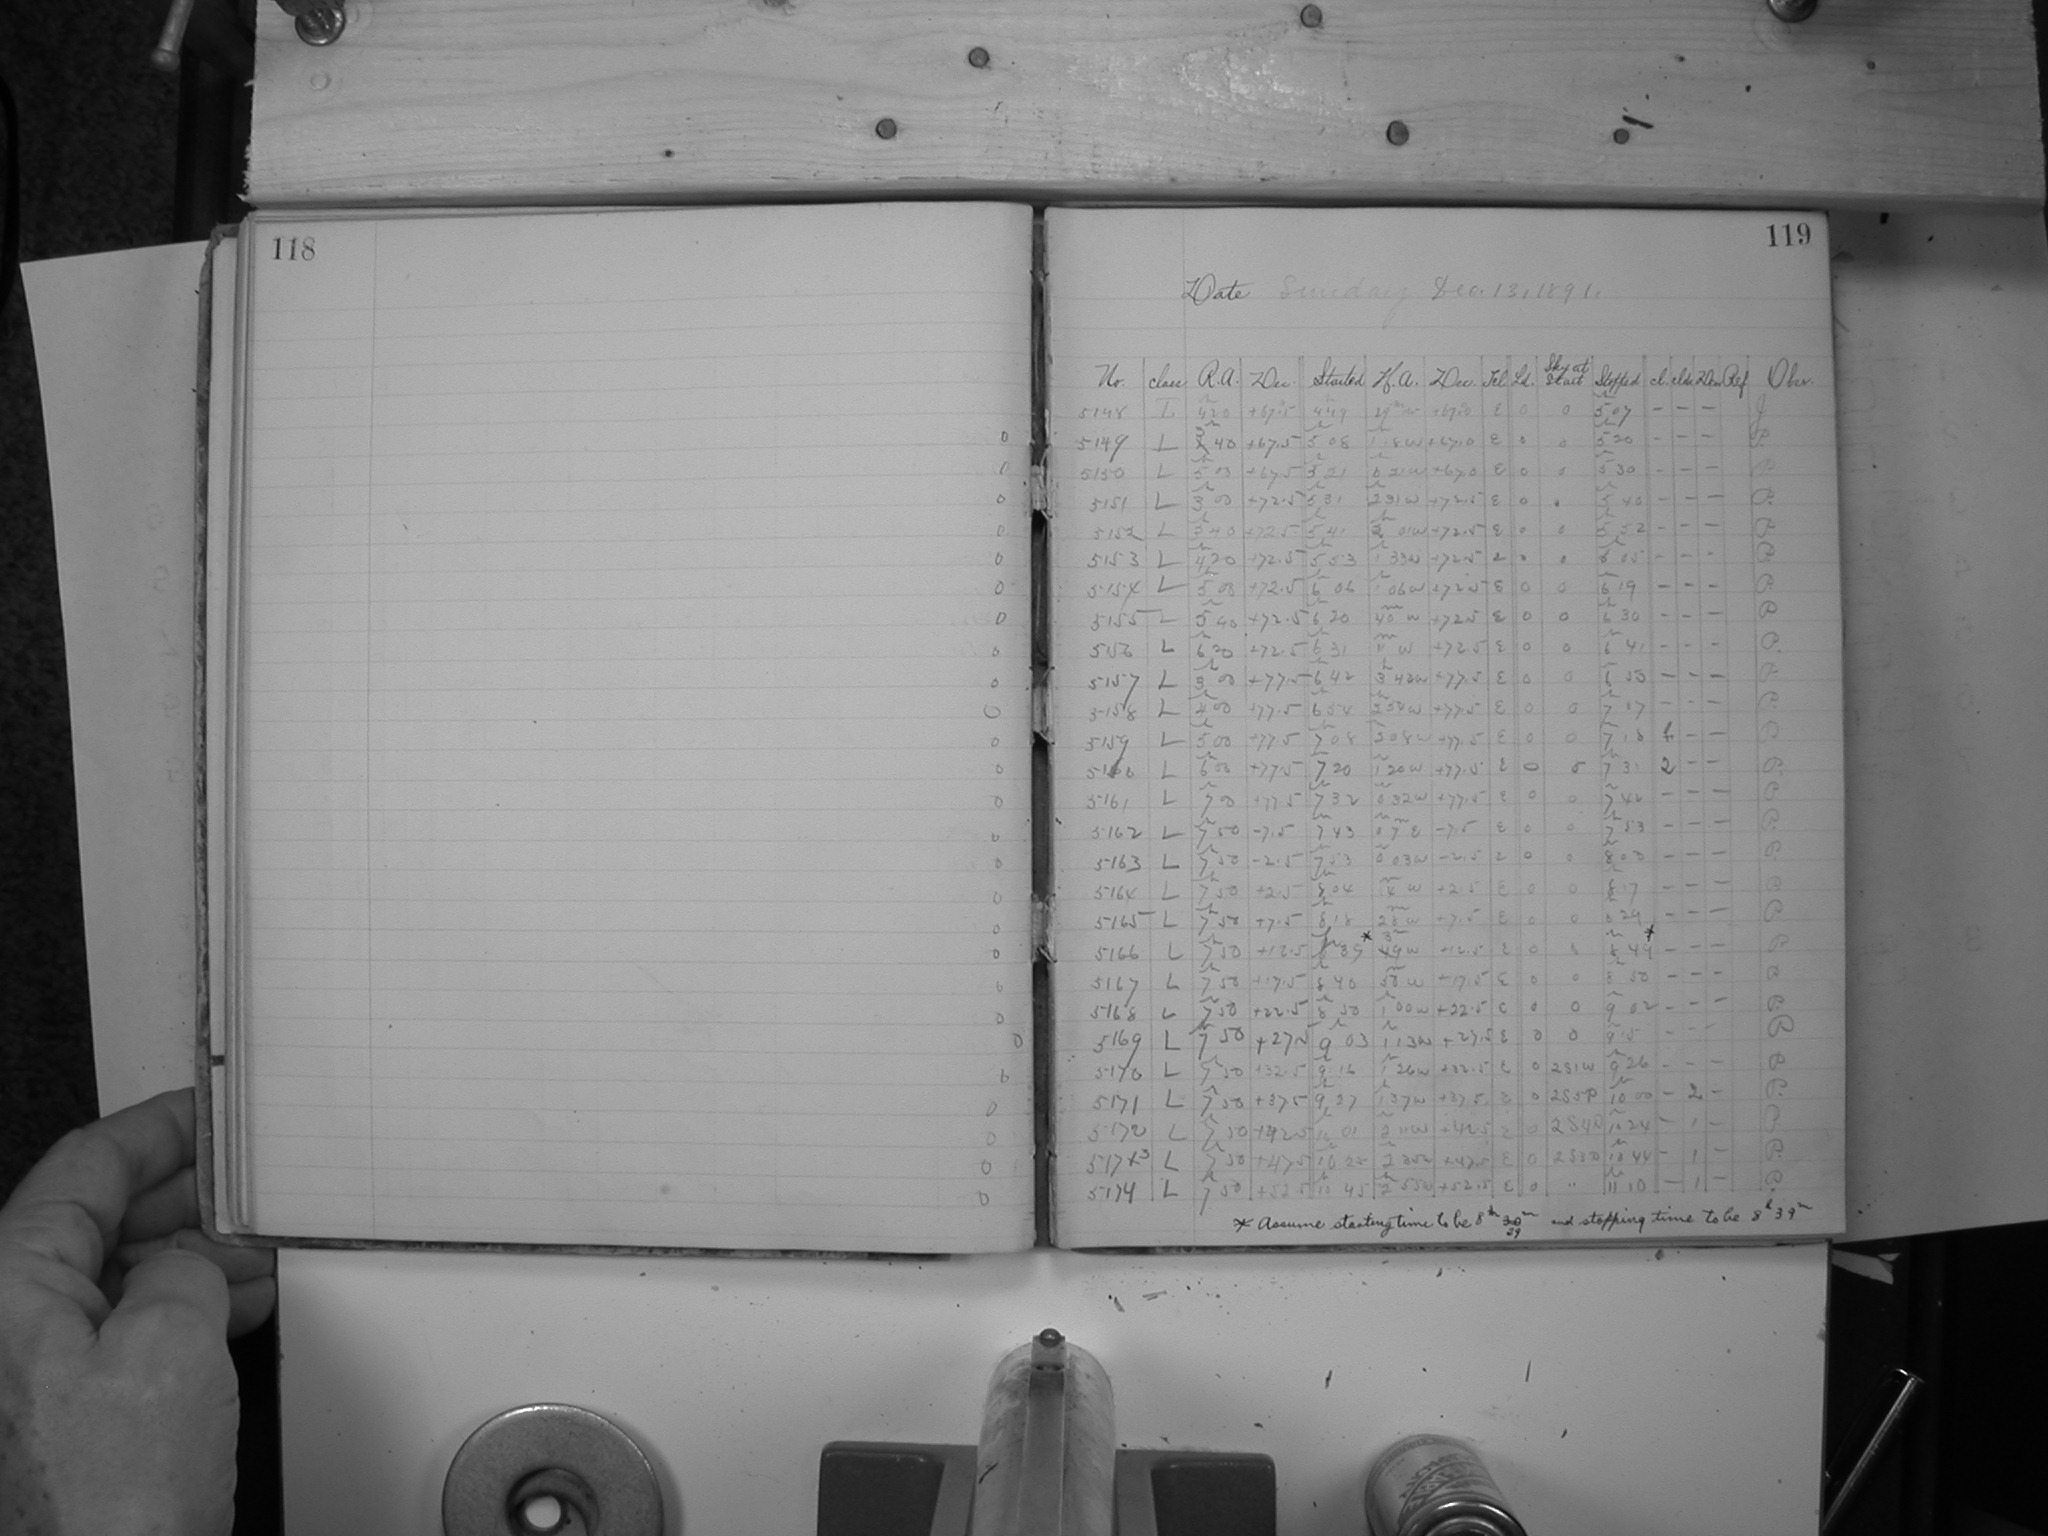 118
119
Date Sunday Dec. 13, 1891.
No. class R.A. Dec. Started H.A. Dec. Tel Ld. Sky at Start Stopped cl. clds Dew Ref Obsr.
5148 L 4 20 +67.5 4 49 29 w +67.0 E 0 0 5 07 - - -
0 5149 L 3 40 +67.5 5 08 1 18w +67.0 E 0 0 5 20 - - -
0 5150 L 5 03 +67.5 5 21 0 21w +67.0 E 0 0 5 30 - - -
0 5151 L 3 00 +72.5 5 31 2 31w +72.5 E 0 0 5 40 - - -
0 5152 L 3 40 +72.5 5 41 2 01w +72.5 E 0 0 5 52 - - -
0 5153 L 4 20 +72.5 5 53 1 33w +72.5 E 0 0 6 05 - - -
0 5154 L 5 00 +72.5 6 06 1 06w +72.5 E 0 0 6 19 - - -
0 5155 L 5 40 +72.5 6 20 40 w +72.5 E 0 0 6 30 - - -
0 5156 L 6 20 +72.5 6 31 11 w +72.5 E 0 0 6 41 - - -
0 5157 L 3 00 +77.5 6 42 3 42w +77.5 E 0 0 6 53 - - -
0 5158 L 4 00 +77.5 6 54 2 54w +77.5 E 0 0 7 07 - - -
0 5159 L 5 00 +77.5 7 08 2 08w +77.5 E 0 0 7 18 - -
0 5160 L 6 00 +77.5 7 20 1 20w +77.5 E 0 7 31 2 - -
0 5161 L 7 00 +77.5 7 32 0 32w +77.5 E 0 0 7 42 - - -
0 5162 L 7 50 -7.5 7 43 0 7 E -7.5 E 0 0 7 53 - - -
0 5163 L 7 50 -2.5 7 53 0 03w -2.5 E 0 0 8 03 - - -
0 5164 L 7 50 +2.5 8 04 14 w +2.5 E 0 0 8 17 - - -
0 5165 L 7 50 +7.5 8 18 28w +7.5 E 0 0 8 29 - - -
0 5166 L 7 50 +12.5 8 39 * 49w +12.5 E 0 8 49 * - - -
0 5167 L 7 50 +17.5 8 40 50 w +17.5 E 0 0 8 50 - - -
0 5168 L 7 50 +22.5 8 50 1 00w +22.5 E 0 0 9 02 - - -
0 5169 L 7 50 +27.5 9 03 1 13w +27.5 E 0 0 9 15 - - -
0 5170 L 7 50 +32.5 9 16 1 26w +32.5 E 0 2S1W 9 26 - - -
0 5171 L 7 50 +37.5 9 27 1 37w +37.5 E 0 2S5P 10 00 - 2 -
0 5172 L 7 50 +42.5 10 01 2 11w +42.5 E 0 2S4P 10 24 - 1 -
0 5173 L 7 50 +47.5 10 25 2 35w +47.5 E 0 2S3P 10 44 - 1 -
0 5174 L 7 50 +52.5 10 45 2 55w +52.5 E 0 " 11 10 - 1 -
* Assume starting time to be 8h 29m and stopping time to be 8h 39m